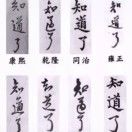 知道了
知道了
知道了
知道了
康熙 乾隆 同治 雍正
知道了
知道了
知道了
知道了